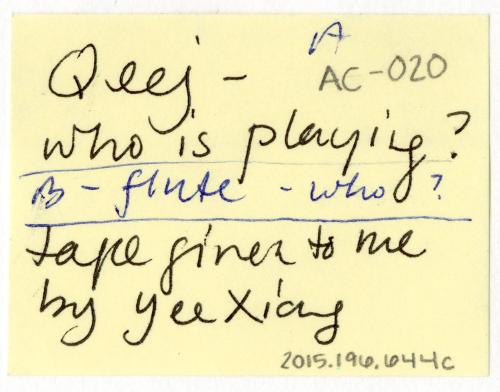 A
AC-020
Qeej -
who is playing?
B - flute - who?
Tape given to me
by Yee Xiong
2015.196.644c